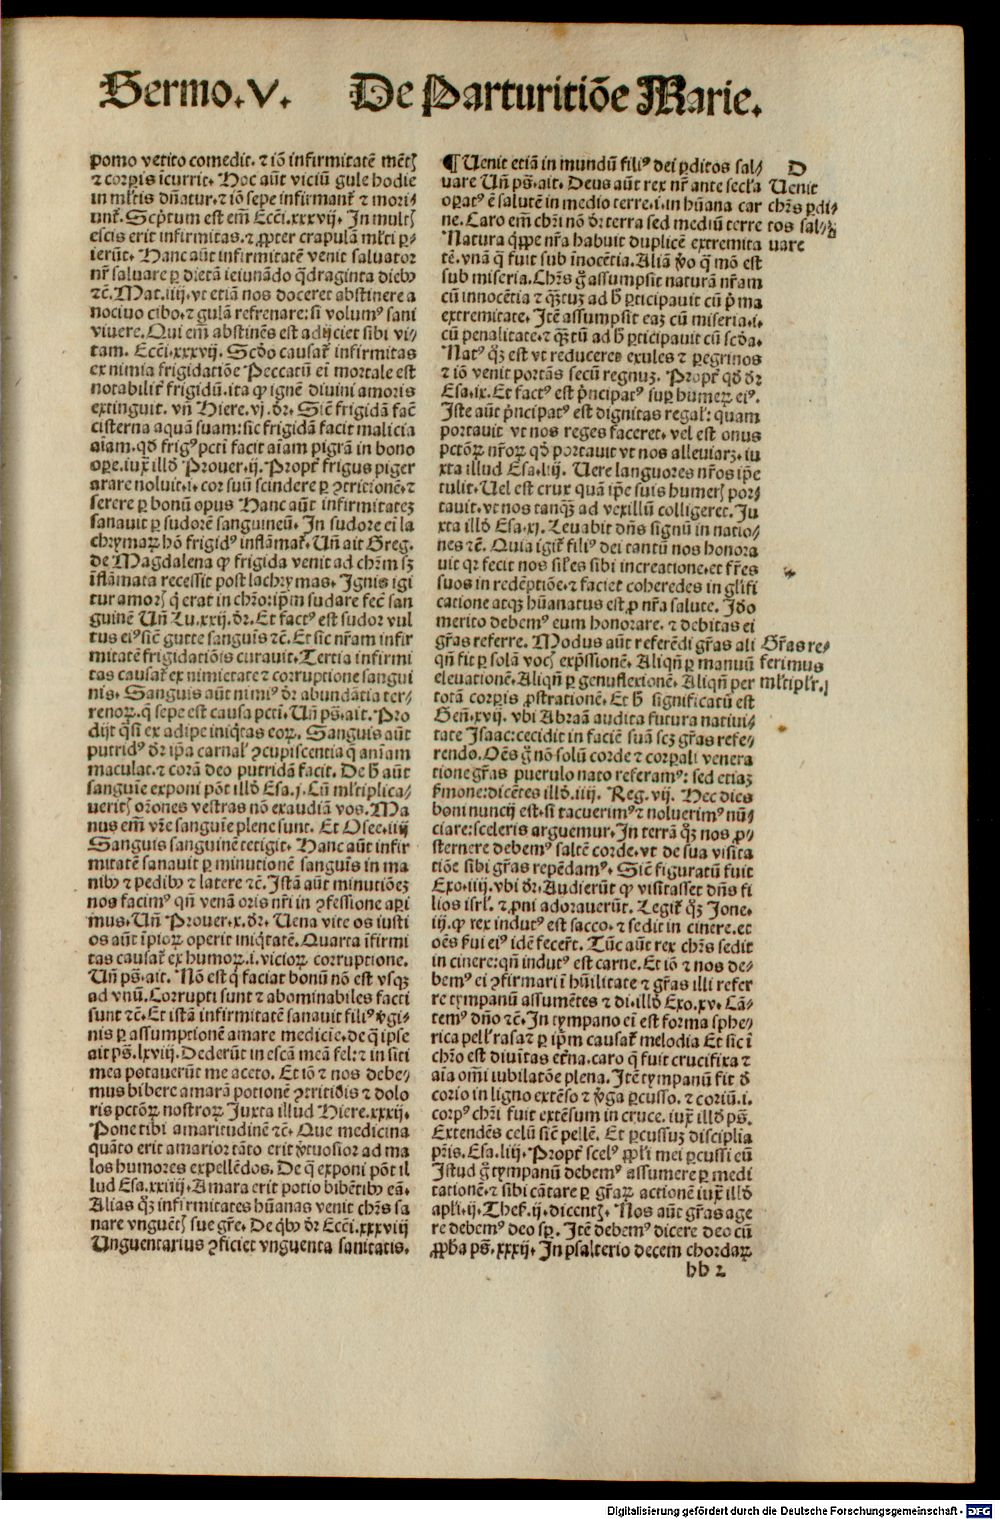 Sermo.V. De Parturitiõe Marie.
pomo vetito comedit. ⁊ iõ infirmitatẽ mẽtꝭ
⁊ corꝑis icurrit. Hoc aũt viciũ gule hodie
in mĺtis dñatur. ⁊ iõ sepe infirmant̃ ⁊ mori-
unt̃. Scp̃tum est em̃ Ecc̃i.xxxvij. In multꝭ
escis erit infirmitas. ⁊ ꝓpter crapulã mĺti ꝑ-
ierũt. Hanc aũt infirmitatẽ venit saluator
nr̃ saluare ꝑ dietã ieiunãdo q̃draginta dieb⁹
⁊c̃. Mat.iiij. vt etiã nos doceret abstinere a
nociuo cibo. ⁊ gulã refrenare: si volum⁹ sani
viuere. Qui em̃ abstinẽs est adijciet sibi vi-
tam. Ecc̃i.xxxvij. Scďo causat̃ infirmitas
ex nimia frigidatiõe Peccatũ em̃ mortale est
notabilit̃ frigidũ. ita ꝙ ignẽ diuini amoris
extinguit. vñ Hiere.vj. dr̃. Sic̃ frigidã fac̃
cisterna aquã suam: sic frigidã facit malicia
aĩam. qď frig⁹ pcc̃i facit aĩam pigrã in bono
oꝑe. iux̃ illď Prouer.ij. Propt̃ frigus piger
arare noluit. i. cor suũ scindere ꝑ ꝯtritionẽ. ⁊
serere ꝑ bonũ opus Hanc aũt infirmitateꝫ
sanauit ꝑ sudorẽ sanguineũ. In sudore em̃ la
chrymaꝝ hõ frigid⁹ inflãmat̃. Uñ ait Greg.
de Magdalena ꝙ frigida venit ad chr̃m sꝫ
ĩflãmata recessit post lachrymas. Ignis igi
tur amorꝭ q̃ erat in chr̃o ip̃m sudare fec̃ san
guinẽ Uñ Lu.xxij. dr̃. Et fact⁹ est sudor vul
tus ei⁹ sic̃ gutte sanguĩs ⁊c̃. Et sic nr̃am infir
mitatẽ frigidatiõis curauit. Tertia infirmi
tas causat̃ ex nimietate ⁊ corruptione sangui
nis. Sanguis aũt nimi⁹ dr̃ abundãtia ter-
renoꝝ. q̃ sepe est causa pcc̃i. Uñ ps̃. ait. Pro
dijt q̃si ex adipe iniq̃tas eoꝝ. Sanguis aũt
putrid⁹ dr̃ ip̃a carnal̃ ꝯcupiscentia q̃ aniam
maculat. ⁊ corã deo putridã facit. De h̃ aũt
sanguĩe exponi põt illď Esa.j. Cũ mĺtiplica-
ueritꝭ or̃ones vestras nõ exaudiã vos. Ma
nus em̃ vr̃e sanguĩe plene sunt. Et Osee.iiij
Sanguis sanguinẽ tetigit. Hanc aũt infir
mitatẽ sanauit ꝑ minutionẽ sanguĩs in ma
nib⁹ ⁊ pedib⁹ ⁊ latere ⁊c̃. Istã aũt minutiõeꝫ
nos facim⁹ qñ venã oris nr̃i in ꝯfessione aꝑi
mus. Uñ Prouer.x. dr̃. Uena vite os iusti
os aũt ĩpioꝝ operit iniq̃tatẽ. Quarta ĩfirmi
tas causat̃ ex humoꝝ. i. vicioꝝ corruptione.
Uñ ps̃. ait. Nõ est q̃ faciat bonũ nõ est vsqꝫ
ad vnũ. Corrupti sunt ⁊ abominabiles facti
sunt ⁊c̃. Et istã infirmitatẽ sanauit fili⁹ v̓gi-
nis ꝑ assumptionẽ amare medicie. de q̃ ipse
ait ps̃.lxviij. Dederũt in escã meã fel: ⁊ in siti
mea potauerũt me aceto. Et iõ ⁊ nos debe-
mus bibere amarã potionẽ ꝯtritiõis ⁊ dolo
ris pctõꝝ nostroꝝ Juxta illud Hiere.xxxij.
Pone tibi amaritudinẽ ⁊c̃. Que medicina
quãto erit amarior tãto erit v̓tuosior ad ma
los humores expellẽdos. De q̃ exponi põt il
lud Esa.xxiiij. Amara erit potio bibẽtib⁹ eã.
Alias q̃ꝫ infirmitates hũanas venit chr̃s sa
nare vnguẽtꝭ sue gr̃e. De q̃b⁹ dr̃ Ecc̃i.xxxviij
Unguentarius ꝯficiet vnguenta sanitatis.
¶ Uenit etiã in mundũ fili⁹ dei ꝑditos sal-
uare Uñ ps̃. ait. Deus aũt rex nr̃ ante secĺa
oꝑat⁹ ẽ salutẽ in medio terre. i. in hũana car
ne. Caro em̃ chr̃i nõ dr̃ terra sed mediũ terre
Natura q̃ppe nr̃a habuit duplicẽ extremita
tẽ. vnã q̃ fuit sub inocẽtia. Aliã v̓o q̃ mõ est
sub miseria. Chr̃s g̃ assumpsit naturã nr̃am
cũ innocẽtia ⁊ q̃ꝫtũ ad h̃ ꝑticipauit cũ p̃ma
extremitate. Itẽ assumpsit eaꝫ cũ miseria. i.
cũ penalitate. ⁊ q̃ꝫtũ ad h̃ ꝑticipauit cũ scďa.
Nat⁹ q̃ꝫ est vt reduceret exules ⁊ ꝑegrinos
⁊ iõ venit portãs secũ regnuꝫ. Propt̃ qď dr̃
Esa.ix. Et fact⁹ est p̃ncipat⁹ suꝑ humeꝝ ei⁹.
Iste aũt p̃ncipat⁹ est dignitas regal̃: quam
portauit vt nos reges faceret. vel est onus
pctõꝝ nr̃oꝝ qď portauit vt nos alleuiarꝫ. iu
xta illud Esa.liij. Uere languores nr̃os ip̃e
tulit. Uel est crux quã ip̃e suis humerꝭ por-
tauit. vt nos tanq̃ꝫ ad vexillũ colligeret. Ju
xta illď Esa.xj. Leuabit dñs signũ in natio-
nes ⁊c̃. Quia igit̃ fili⁹ dei tantũ nos honora
uit qꝛ fecit nos sil̃es sibi in creatione. et fr̃es
suos in redẽptiõe. ⁊ faciet coheredes in gl̃ifi
catione atqꝫ hũanatus est ꝓ nr̃a salute. Iďo
merito debem⁹ eum honorare. ⁊ debitas ei
gr̃as referre. Modus aũt referẽdi gr̃as ali
qñ fit ꝑ solã vocꝭ exp̃ssionẽ. Aliqñ ꝑ manuũ
eleuationẽ. Aliqñ ꝑ genuflexionẽ. Aliqñ per
totã corꝑis ꝓstrationẽ. Et h̃ significatũ est
Geñ.xvij. vbi Abraã audita futura natiui-
tate Isaac: cecidit in faciẽ suã scꝫ gr̃as refe-
rendo. Oẽs g̃ nõ solũ corde ⁊ corꝑali venera
tione gr̃as puerulo nato referam⁹: sed etiaꝫ
s̓mone: dicẽtes illď.iiij. Reg.vij. Hec dies
boni nuncij est. si tacuerim⁹ ⁊ noluerim⁹ nũ-
ciare: sceleris arguemur. In terrã q̃ꝫ nos ꝓ-
sternere debem⁹ saltẽ corde. vt de sua visita
tiõe sibi gr̃as repẽdam⁹. Sic̃ figuratũ fuit
Exo.iiij. vbi dr̃. Audierũt ꝙ visitasset dñs fi
lios isrl̃. ⁊ ꝓni adorauerũt. Legit̃ q̃ꝫ Jone.
iij. ꝙ rex indut⁹ est sacco. ⁊ sedit in cinere. et
oẽs s̓ui ei⁹ idẽ fecer̃t. Tũc aũt rex chr̃s sedit
in cinere: qñ indut⁹ est carne. Et iõ ⁊ nos de-
bem⁹ ei ꝯfirmari ĩ hũilitate ⁊ gr̃as illi refer
re tympanũ assumẽtes ⁊ di. illď Exo.xv. Cã-
tem⁹ dño ⁊c̃. In tympano em̃ est forma sphe-
rica pell̃ rasa ⁊ ꝑ ip̃m causat̃ melodia Et sic ĩ
chr̃o est diuĩtas et̃na. caro q̃ fuit crucifixa ⁊
aĩa om̃i iubilatõe plena. Itẽ tympanũ fit ď
corio in ligno extẽso ⁊ v̓ga ꝑcusso. ⁊ coriũ. i.
corp⁹ chr̃i fuit extẽsum in cruce. iux̃ illď ps̃.
Extendẽs celũ sic̃ pellẽ. Et ꝑcussuꝫ disciplĩa
pr̃is. Esa.liij. Propt̃ scel⁹ ppl̃i mei ꝑcussi eũ
Istud g̃ tympanũ debem⁹ assumere ꝑ medi
tationẽ. ⁊ sibi cãtare ꝑ gr̃aꝝ actionẽ iux̃ illď
apl̃i.ij. Thes̃.ij. dicentꝭ. Nos aũt gr̃as age
re debem⁹ deo sꝑ. Itẽ debem⁹ dicere deo cũ
ꝓpħa ps̃.xxxij. In psalterio decem chordaꝝ
D
Uenit
chr̃s ꝑdi-
tos sal-
uare
Gr̃as re-
ferimus
mĺtiplr̃.
hh 2
Digitalisierung gefördert durch die Deutsche Forschungsgemeinschaft - DFG